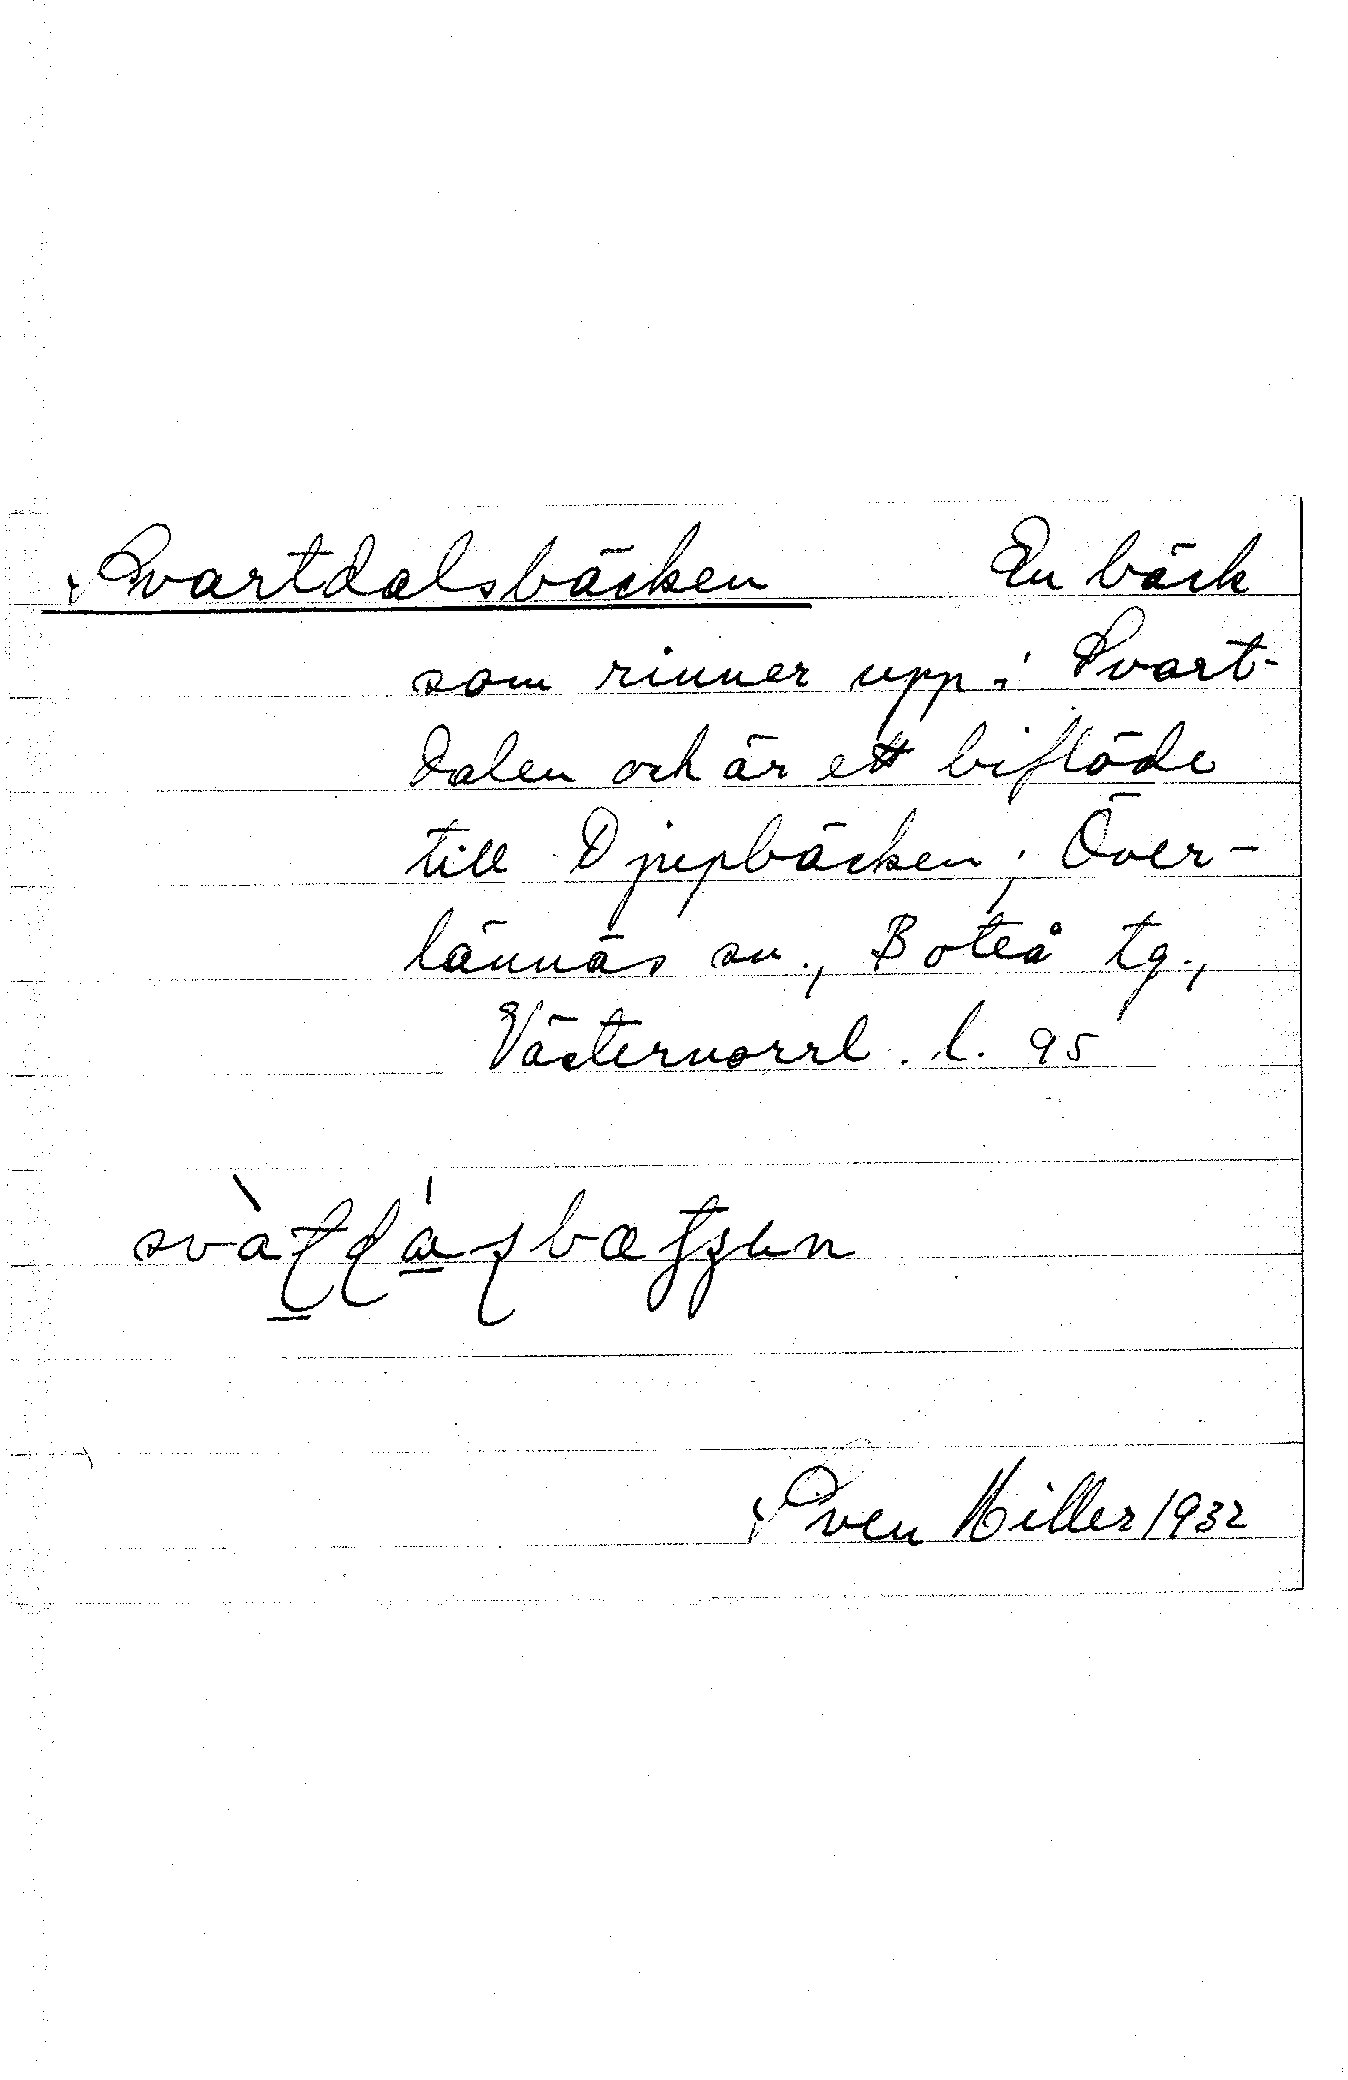 Svartdalsbäcken En bäck
som rinner upp i Svart-
dalen och är ett biflöde
till Djupbäcken i Över-
lännäs sn., Boteå tg.,
Västernorrl. l. 95
Sven Hiller 1932